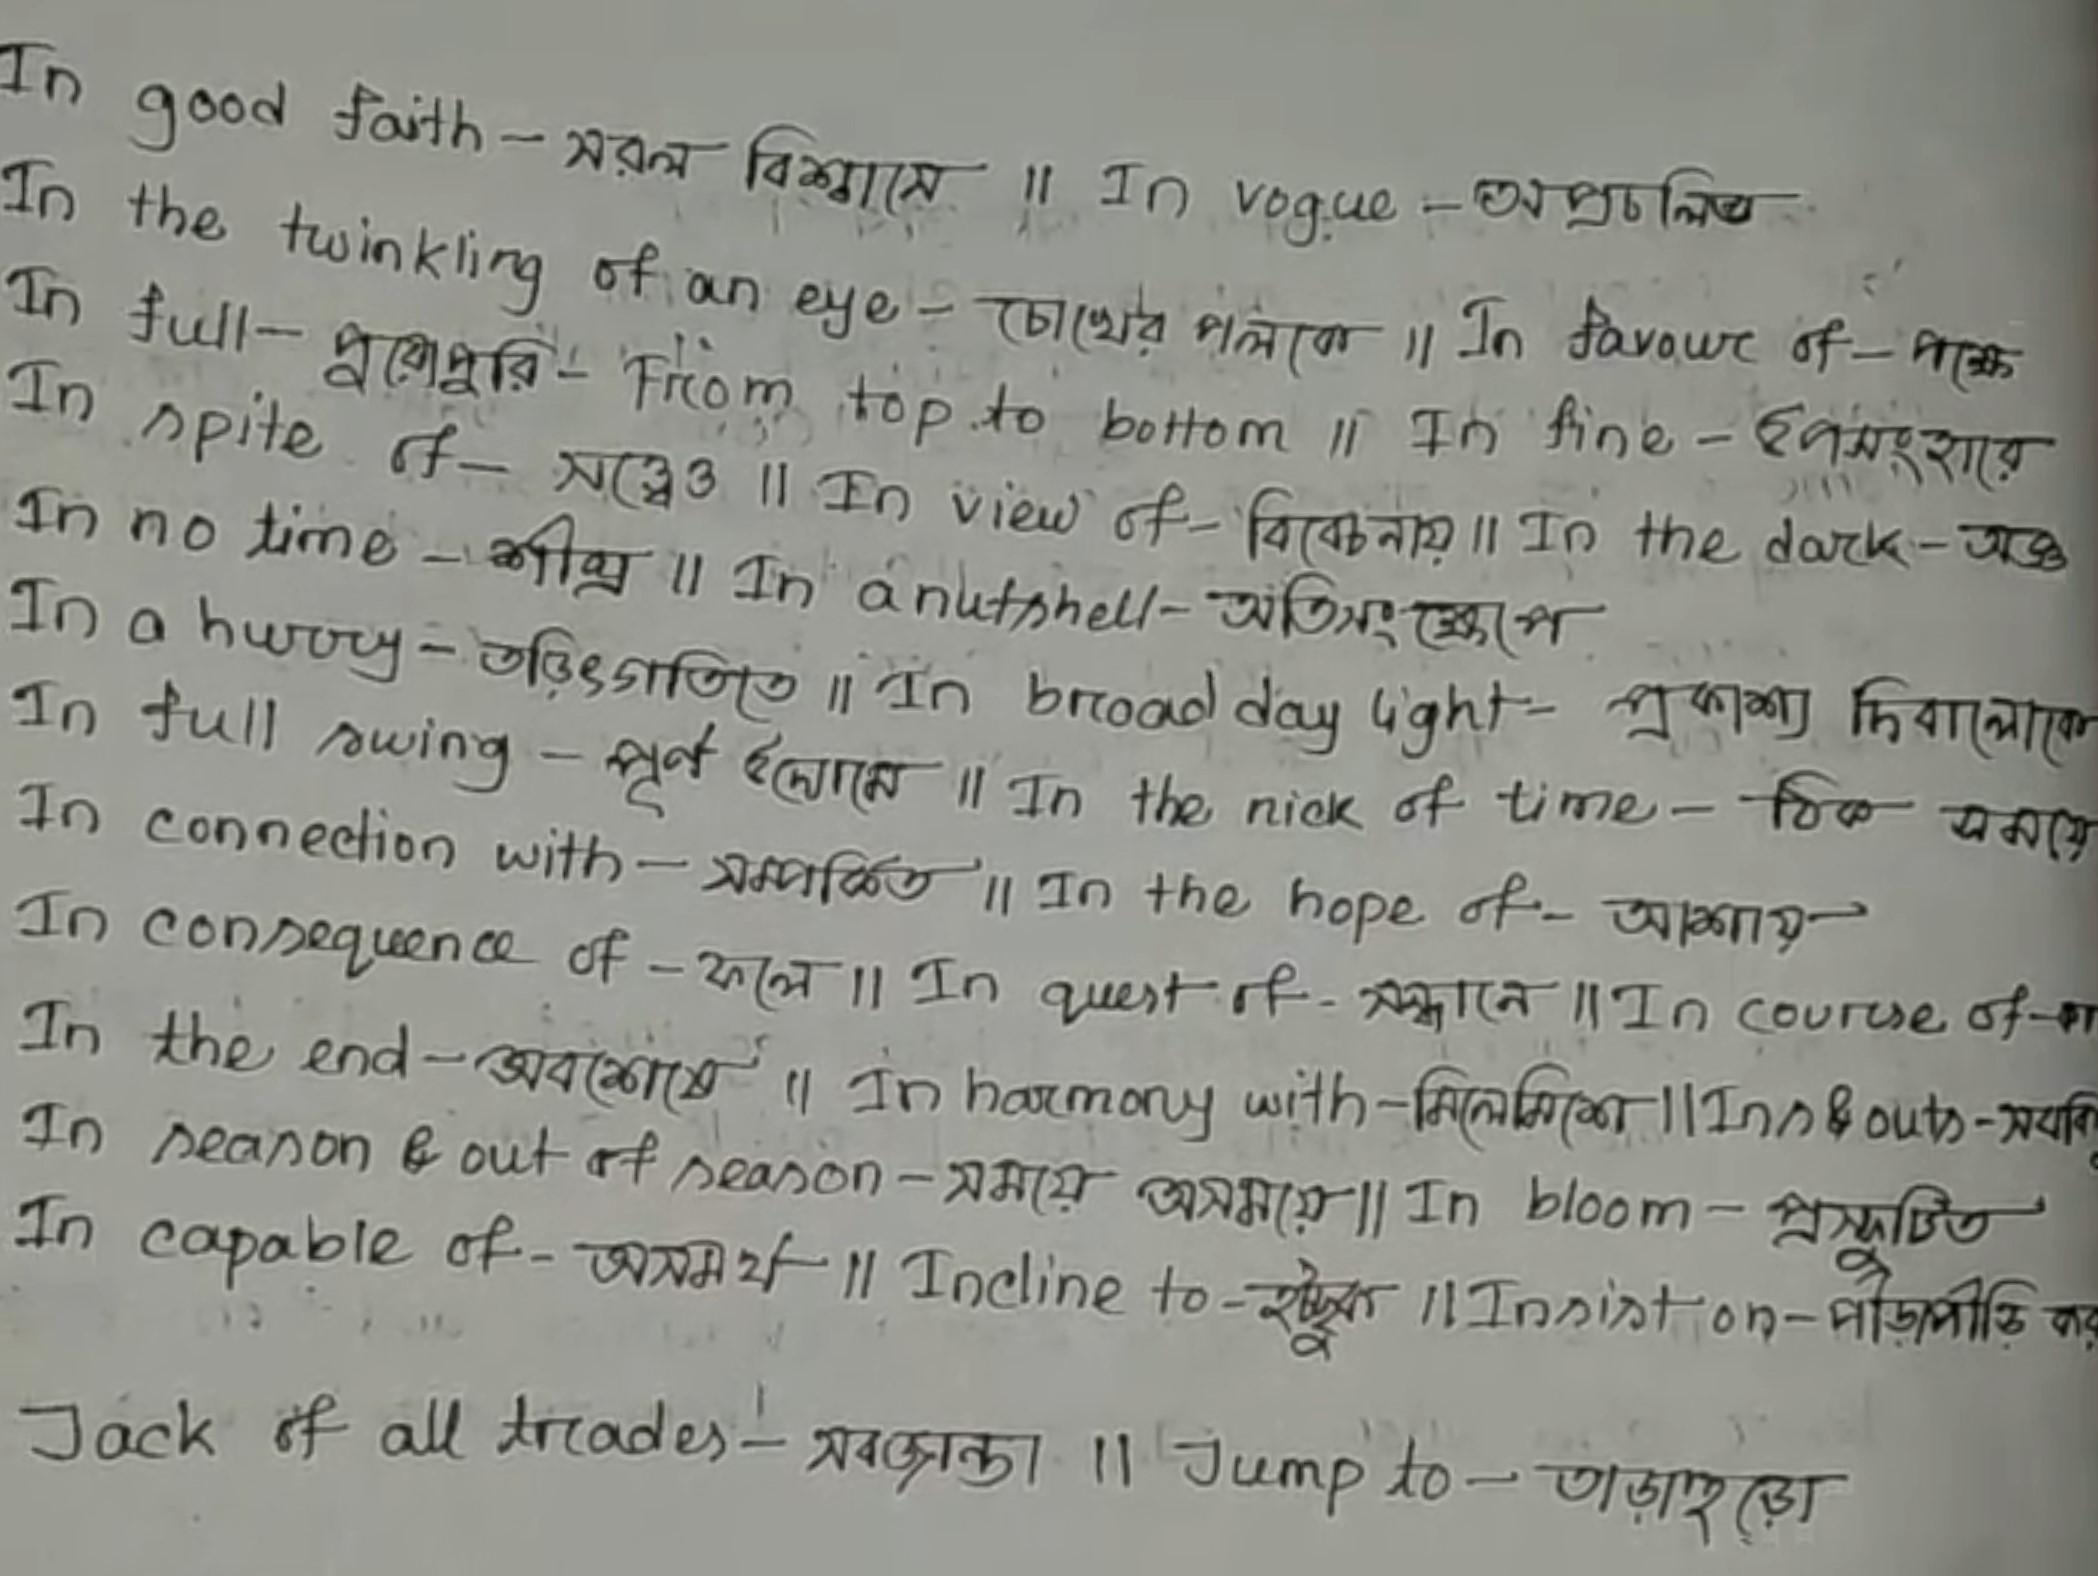 In good faith - সরল বিশ্বাসে || In vogue - অপ্রচলিত
In the twinkling of an eye - চোখের পলকে || In favour of - পক্ষে
In full - পুরোপুরি - From top to bottom || In fine - উপসংহারে
In spite of - সত্ত্বেও || In view of - বিবেচনায় || In the dark - অজ্ঞ
In no time - শীঘ্র || In a nutshell - অতিসংক্ষেপে
In a hurry - তড়িৎগতিতে || In broad day light - প্রকাশ্য দিবালোকে
In full swing - পূর্ণ || In the nick of time - ঠিক সময়ে
In connection with - সম্পর্কিত || In the hope of - আশায়
In consequence of - ফলে || In quest of - সন্ধানে || In course of -
In the end - অবশেষে || In harmony with - মিলেমিশে || Ins & outs -
In season & out of season - সময়ে অসময়ে || In bloom - প্রস্ফুটিত
In capable of - অসমর্থ || Incline to - || Insist on - পীড়াপীড়ি
Jack of all trades - সবজান্তা || Jump to - তাড়াহুড়ো